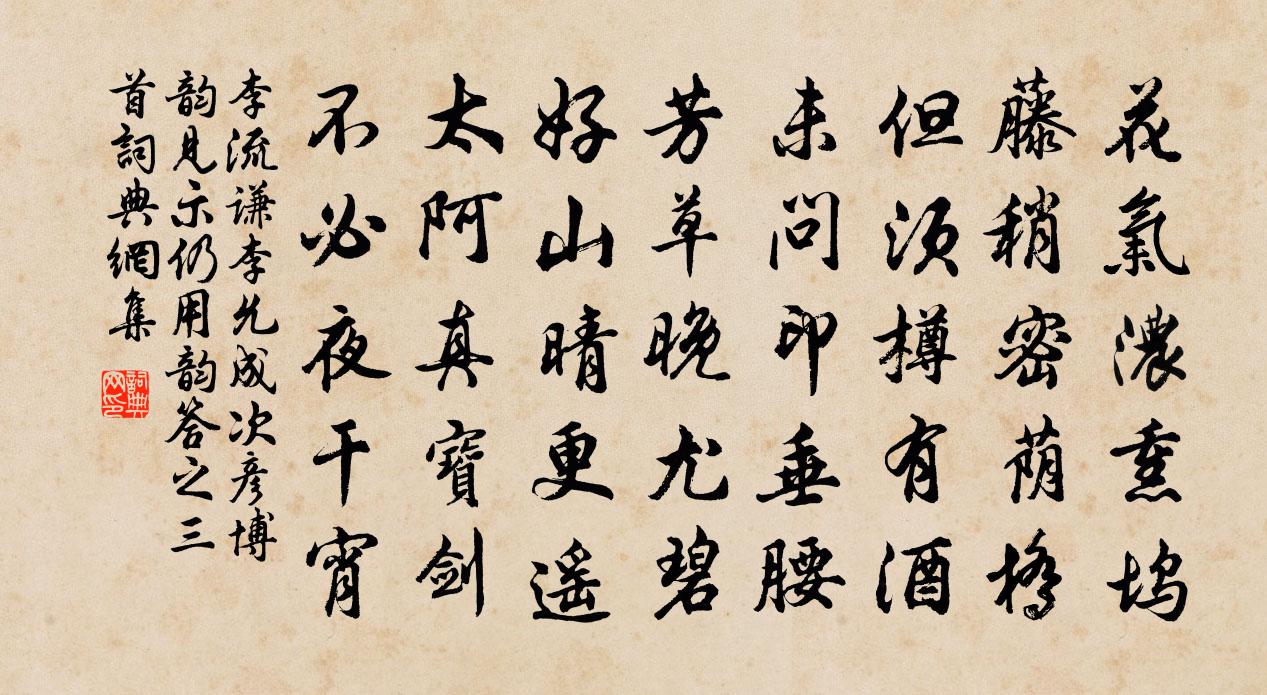 花氣濃熏塢
藤稍密蔭橋
但須樽有酒
未問印垂腰
芳草晚尤碧
好山晴更遥
太阿真寶劍
不必夜干宵
李流谦李允成次彦博
韵見示仍用韵答之三
首詞典網集
詞典网印